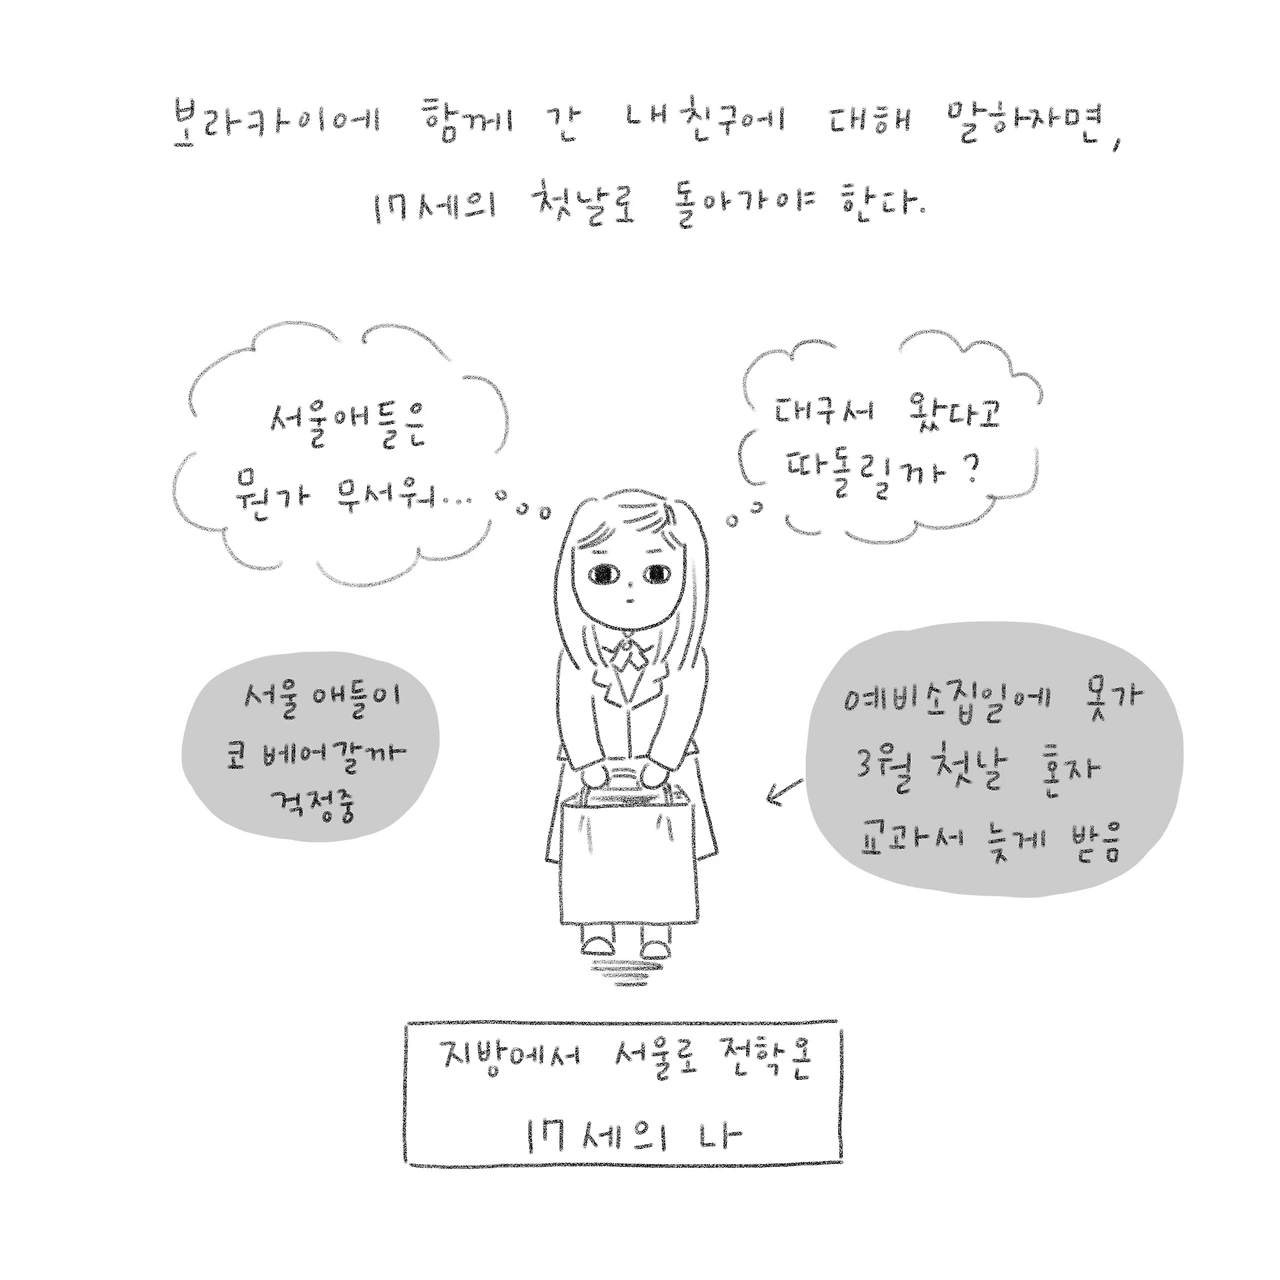 보라카이에 함께 간 내친구에 대해 말하자면,
17세의 첫날로 돌아가야 한다.
서울애들은
뭔가 무서워...
대구서 왔다고
따돌릴까?
서울 애들이
코 베어갈까
걱정중
예비소집일에 못가
3월 첫날 혼자
교과서 늦게 받음
지방에서 서울로 전학온
17세의 나